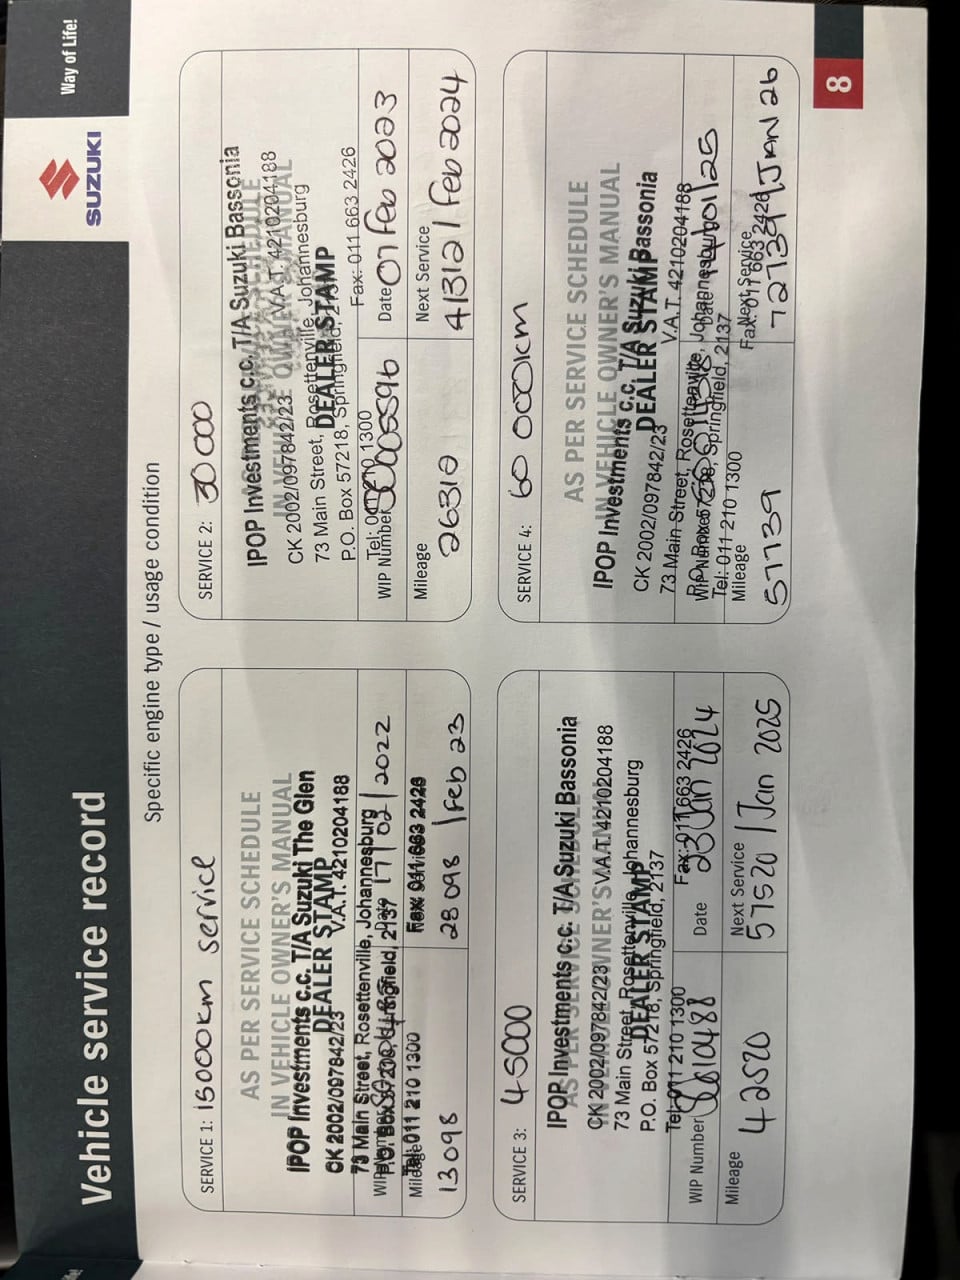 Vehicle service record
SUZUKI
Way of Life!
Specific engine type / usage condition
SERVICE 1: 15000km service
AS PER SERVICE SCHEDULE
IN VEHICLE OWNER'S MANUAL
IPOP Investments c.c. T/A Suzuki The Glen
DEALER STAMP
CK 2002/097842/23 V.A.T. 4210204188
73 Main Street, Rosettenville, Johannesburg
P.O. Box 57200, Springfield, 2137
17/02/2022
Tel: 011 210 1300 Fax: 011 663 2426
Mileage
13098
28098 / Feb 23
SERVICE 2: 30 000
IPOP Investments c.c. T/A Suzuki Bassonia
IN VEHICLE OWNER'S MANUAL
CK 2002/097842/23 V.A.T. 4210204188
73 Main Street, Rosettenville, Johannesburg
DEALER STAMP
P.O. Box 57218, Springfield, 2137
Tel: 011 210 1300 Fax: 011 663 2426
WIP Number
Date 07 Feb 2023
Mileage
26312
Next Service
41312 / Feb 2024
SERVICE 3: 45000
IPOP Investments c.c. T/A Suzuki Bassonia
AS PER SERVICE SCHEDULE
CK 2002/097842/23 V.A.T. 4210204188
IN VEHICLE OWNER'S MANUAL
73 Main Street, Rosettenville, Johannesburg
DEALER STAMP
P.O. Box 57218, Springfield, 2137
Tel: 011 210 1300 Fax: 011 663 2426
WIP Number
Date 23 Jan 2024
Mileage
42520
Next Service
57520 / Jan 2025
SERVICE 4: 60 000km
AS PER SERVICE SCHEDULE
IN VEHICLE OWNER'S MANUAL
IPOP Investments c.c. T/A Suzuki Bassonia
DEALER STAMP
CK 2002/097842/23 V.A.T. 4210204188
73 Main Street, Rosettenville, Johannesburg
P.O. Box 57218, Springfield, 2137
WIP Number
Date
Tel: 011 210 1300 Fax: 011 663 2426
Mileage
57739
Next Service
72739 / JAN 26
8